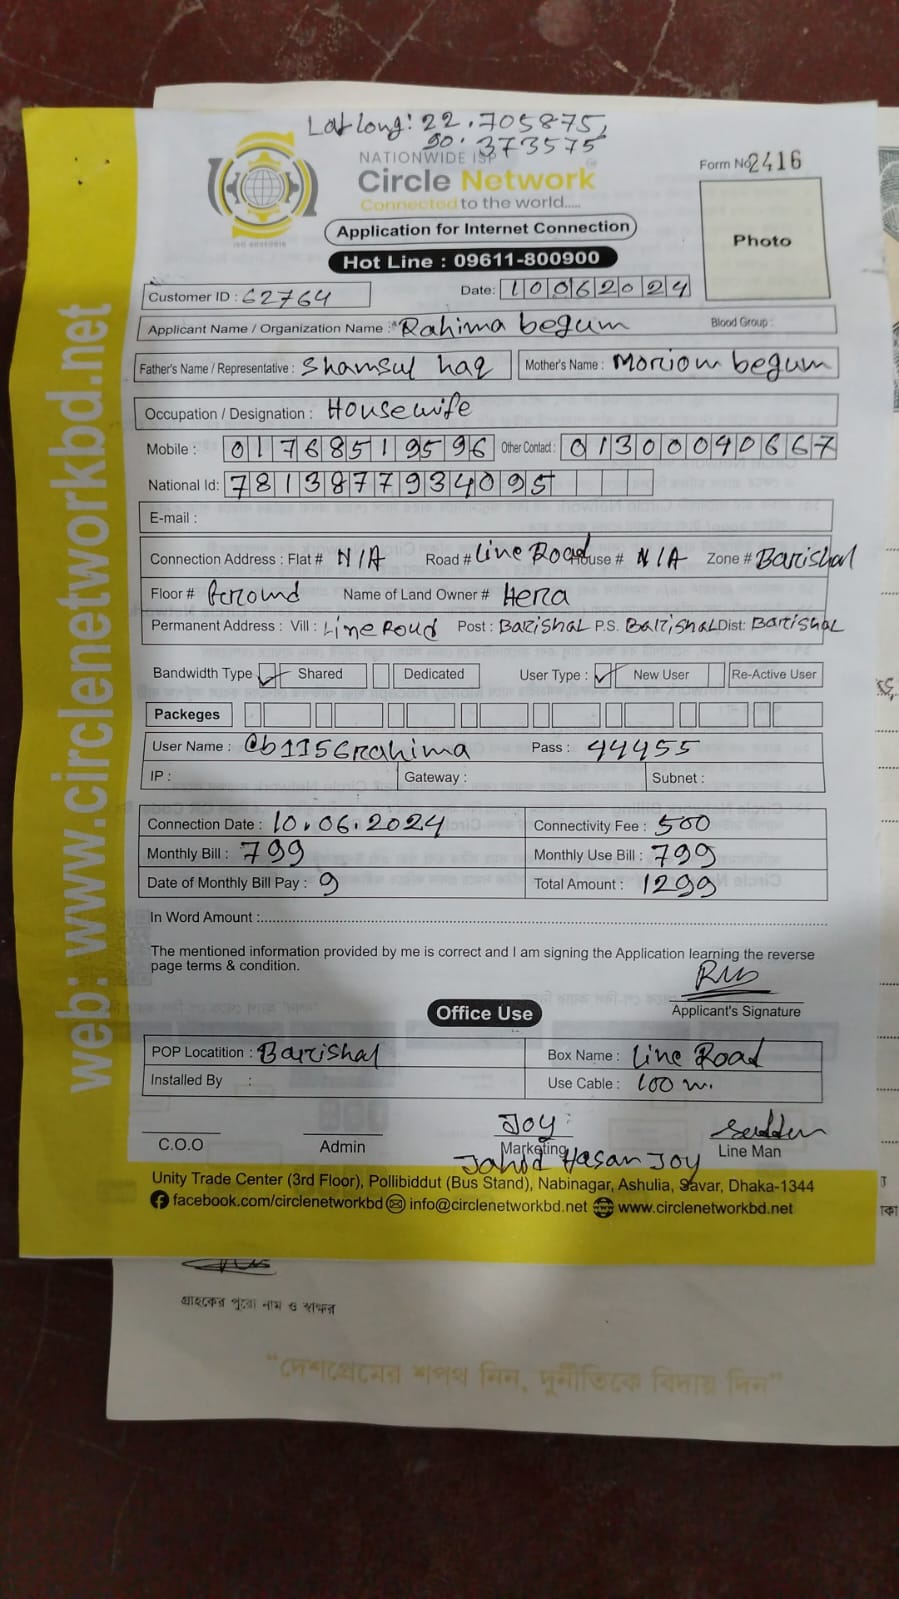 Lat long: 22.705875,
90.373575
NATIONWIDE ISP
Circle Network
Connected to the world.....
Form No 2416
Photo
Application for Internet Connection
Hot Line : 09611-800900
Customer ID : 62764
Date: 10062024
Applicant Name / Organization Name : Rahima begum Blood Group :
Father's Name / Representative : Shamsul haq Mother's Name : Moriom begum
Occupation / Designation : Housewife
Mobile : 01768519596 Other Contact : 01300040667
National Id: 7813877934095
E-mail :
Connection Address : Flat # N/A Road # Line Road House # N/A Zone # Barishal
Floor # Ground Name of Land Owner # Hera
Permanent Address : Vill : Line Roud Post : Barishal P.S. Barishal Dist: Barishal
Bandwidth Type Shared Dedicated User Type : New User Re-Active User
Packeges
User Name : @b1156rahima Pass : 44455
IP : Gateway : Subnet :
Connection Date : 10.06.2024 Connectivity Fee : 500
Monthly Bill : 799 Monthly Use Bill : 799
Date of Monthly Bill Pay : 9 Total Amount : 1299
In Word Amount :
The mentioned information provided by me is correct and I am signing the Application learning the reverse
page terms & condition.
Applicant's Signature
Office Use
POP Locatition : Barishal Box Name : Line Road
Installed By : Use Cable : 100 m.
Joy
C.O.O Admin Marketing Line Man
Jahid Hasan Joy
Unity Trade Center (3rd Floor), Pollibiddut (Bus Stand), Nabinagar, Ashulia, Savar, Dhaka-1344
facebook.com/circlenetworkbd info@circlenetworkbd.net www.circlenetworkbd.net
web: www.circlenetworkbd.net
গ্রাহকের পুরো নাম ও স্বাক্ষর
"দেশপ্রেমের শপথ নিন, দুর্নীতিকে বিদায় দিন"